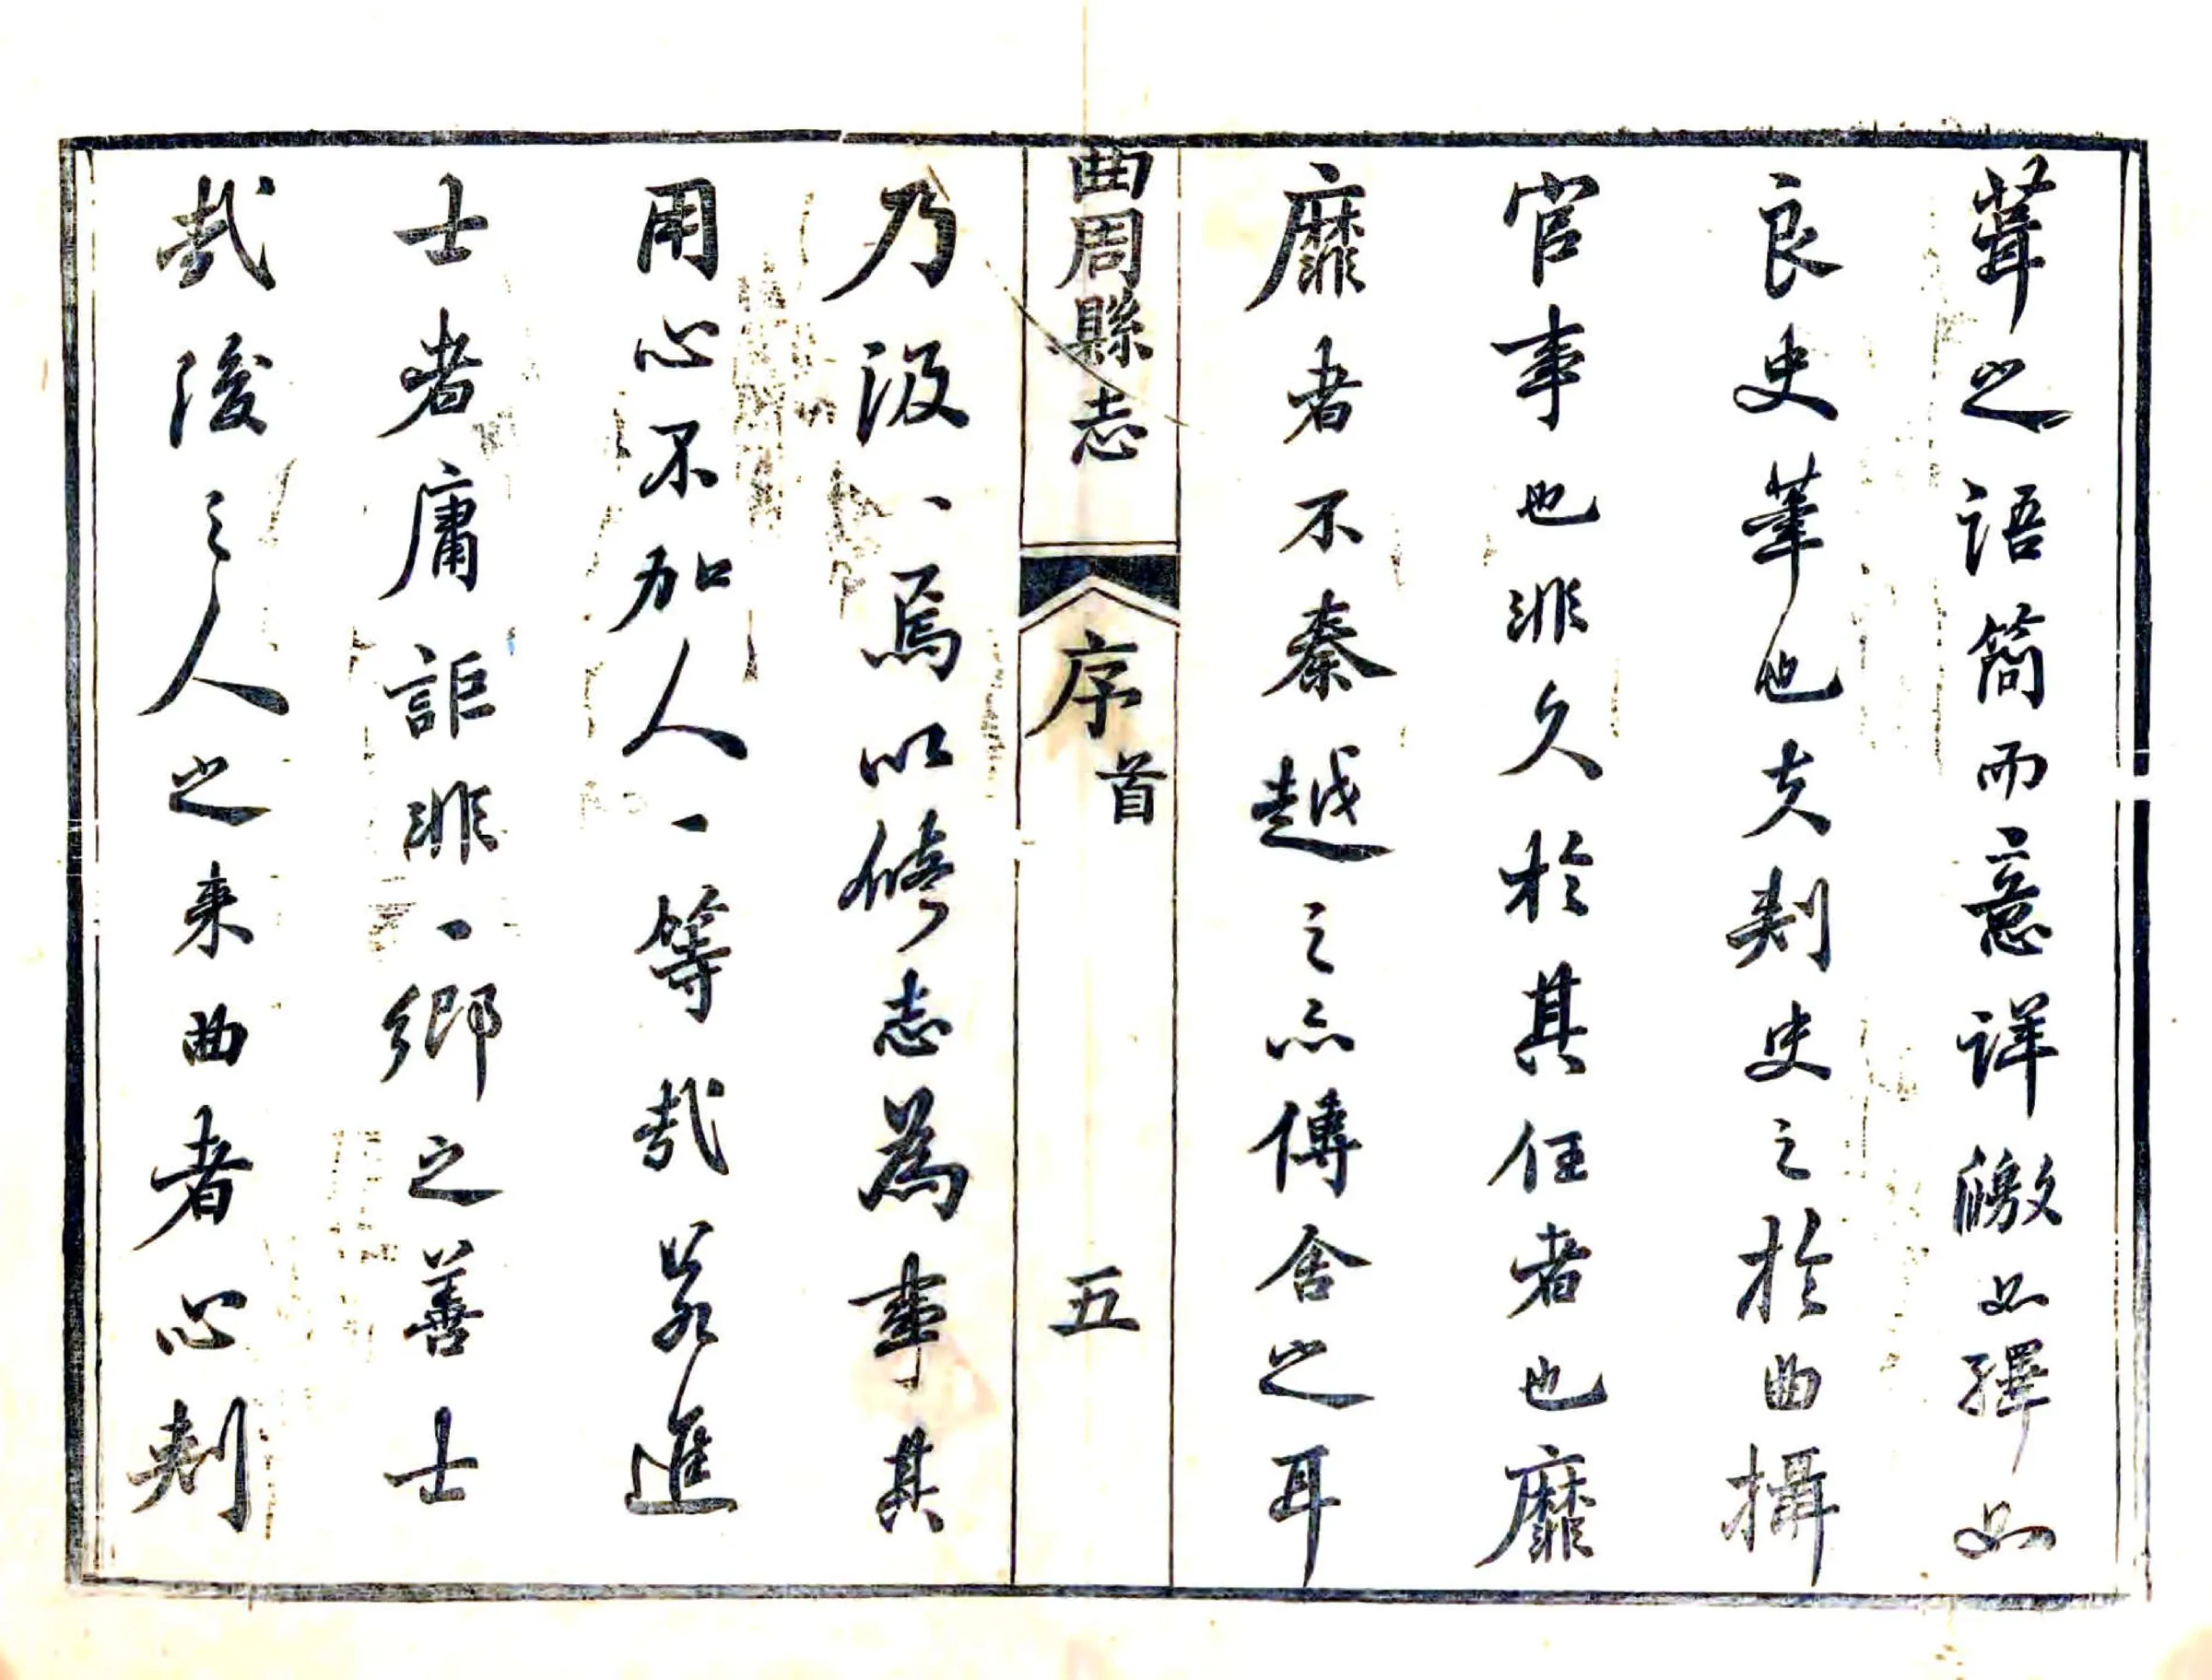 葺之語簡而意詳皦如繹如
良史筆也夫刾史之於曲攝
官事也非久於其任者也靡
靡者不秦越之亦傳舍之耳
曲周縣志 序首 五
乃汲〻焉以脩志為事其
用心不加人一等哉若進
士者庸詎非一鄉之善士
哉後之人之来曲者心刾